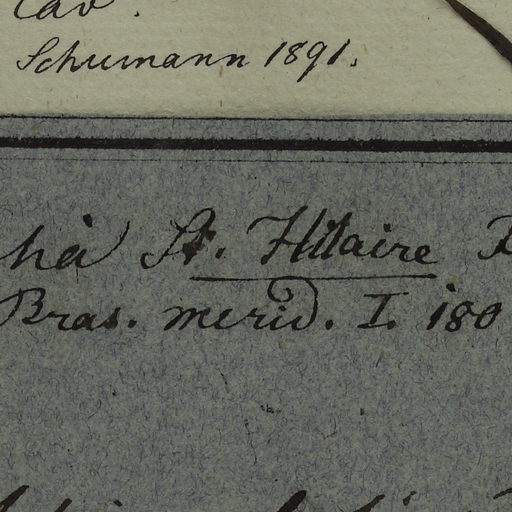 Cav.
Schumann 1891.
hà St. Hilaire
Bras. merid. I. 180